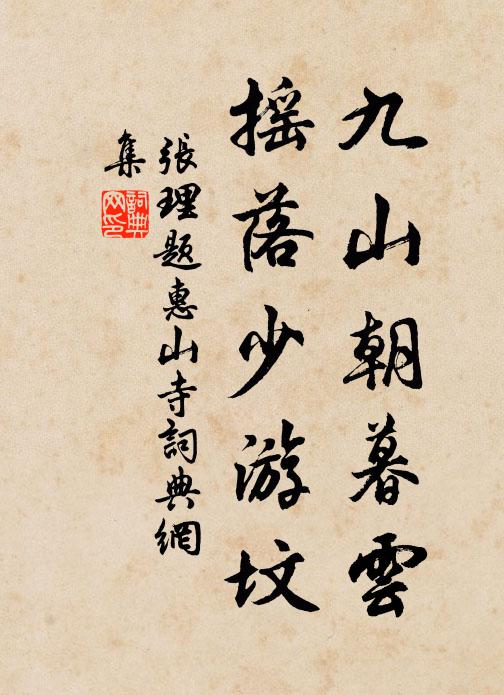 九山朝暮雲
摇落少游坟
張理題惠山寺詞典網
集
詞典
网印